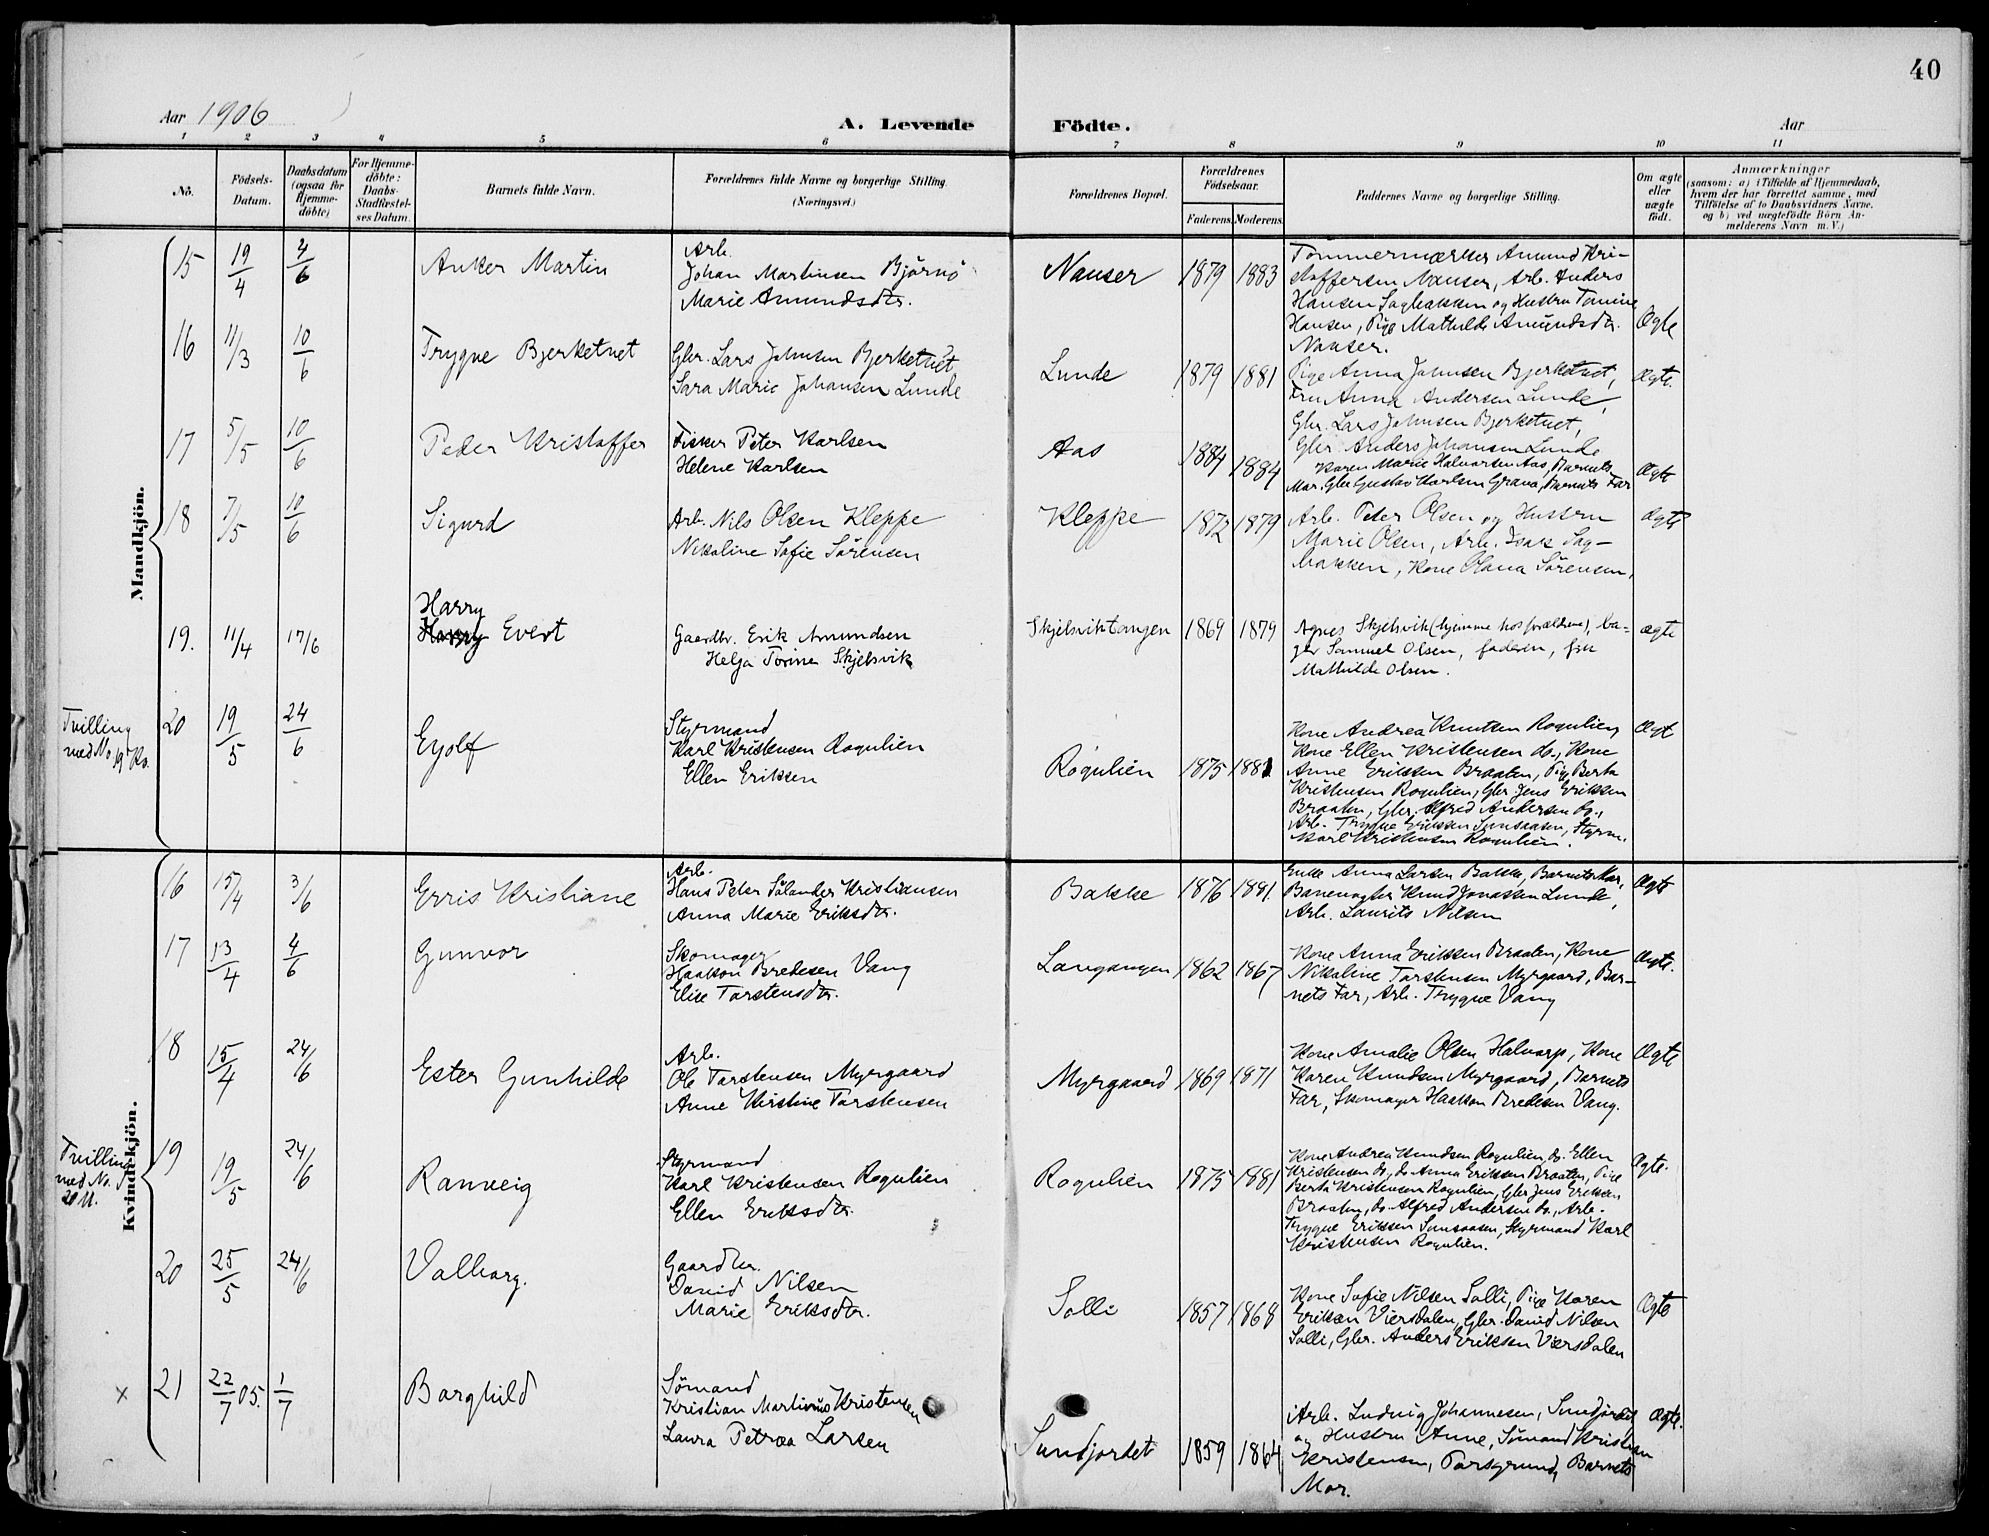 40
Aar 1906
A. Levende Födte.
Aar
1 2 3 4 5 6 7 8 9 10 11
No.
Födsels-
Datum.
Daabsdatum
(ogsaa for
Hjemme-
döbte)
For Hjemme-
döbte:
Daabs-
Stadfæstel-
ses Datum.
Barnets fulde Navn.
Forældrenes fulde Navne og borgerlige Stilling.
(Næringsvei.)
Forældrenes Bopæl.
Forældrenes
Födselsaar.
Faderens. Moderens.
Faddernes Navne og borgerlige Stilling.
Om ægte
eller
uægte
födt.
Anmærkninger
(saasom: a) i Tilfælde af Hjemmedaab,
hvem der har forrettet samme, med
Tilföielse af to Daabsvidners Navne,
og b) ved uægtefödte Börn An-
melderens Navn m. V.)
Mandkjön.
15 19/4 4/6 Anker Martin
Arb.
Johan Martinsen Bjørnø
Marie Amundsdtr.
Nauser 1879 1883
Tømmermærker Amund Kri-
stoffersen Nauser, Arb. Anders
Hansen Sagbakken og Hustru Tomine
Hansen, Pige Mathilde Amundsdtr.
Nauser.
Ægte
16 11/3 10/6 Trygve Bjerketvet
Gbr. Lars Johnsen Bjerketvet
Sara Marie Johansen Lunde
Lunde 1879 1881
Pige Anna Johnsen Bjerketvet,
Fru Anna Andersen Lunde,
Gbr. Lars Johnsen Bjerketvet,
Gbr. Anders Johansen Lunde
Ægte.
17 5/5 10/6 Peder Kristoffer
Fisker Peter Karlsen
Helene Karlsen
Aas 1884 1884
Karen Marie Halvorsen Aas, Barnets
Mor, Gbr Gustav Karlsen Grava, Barnets Far
Ægte
18 7/5 10/6 Sigurd
Arb. Nils Olsen Kleppe
Nikoline Sofie Sørensen
Kleppe 1872 1879
Arb. Peter Olsen og Hustru
Marie Olsen, Arb. Isak Sag-
bakken, Kone Olava Sørensen,
Ægte
19. 11/4 17/6 Harry
Harry Evert
Gaardbr. Erik Amundsen
Helga Torine Skjelsvik
Skjelsviktangen 1869 1879
Agnes Skjelsvik (hjemme hos forældrene), ba-
ger Samuel Olsen, faderen, frk
Mathilde Olsen.
ægte
Tvilling
med No 19 Kv.
20 19/5 24/6 Eyolf
Styrmand
Karl Kristensen Rognlien
Ellen Eriksen
Rognlien 1875 1881
Kone Andrea Knutsen Rognlien,
Kone Ellen Kristensen do., Kone
Anne Eriksen Braaten, Pige Berta
Kristensen Rognlien, Gbr. Jens Eriksen
Braaten, Gbr. Alfred Andersen do.,
Arb. Trygve Eriksen Sunsaasen, Styrm.
Karl Kristensen Rognlien.
Ægte
Kvindekjön.
16 15/4 3/6 Erris Kristiane
Arb.
Hans Peter Sålander Kristiansen
Anna Marie Eriksdtr.
Bakke 1876 1881.
Enke Anna Larsen Bakke, Barnets Mor,
Banevogter Knud Jonassen Lunde,
Arb. Laurits Nilsen
Ægte
17 13/4 4/6 Gunvor
Skomager
Haakon Bredesen Vang
Elise Torstensdtr.
Langangen 1862 1867
Kone Anna Eriksen Braaten, Kone
Nikoline Torstensen Myrgaard, Bar-
nets Far, Arb. Trygve Vang
Ægte.
18 15/4 24/6 Ester Gunhilde
Arb.
Ole Torstensen Myrgaard
Anne Kirstine Torstensen
Myrgaard 1869 1871
Kone Amalie Olsen Halvarp, Kone
Karen Knudsen Myrgaard, Barnets
Far, Skomager Haakon Bredesen Vang.
Ægte
Tvilling
med No.
20 M.
19 19/5 24/6 Ranveig
Styrmand
Karl Kristensen Rognlien
Ellen Eriksdtr.
Rognlien 1875 1881
Kone Andrea Knudsen Rognlien, do. Ellen
Kristensen do., do Anna Eriksen Braaten, Pige
Berta Kristensen Rognlien, Gbr Jens Eriksen
Braaten, do. Alfred Andersen do., Arb.
Trygve Eriksen Sunsaasen, Styrmand Karl
Kristensen Rognlien.
Ægte.
20 25/5 24/6 Valborg.
Gaardbr.
David Nilsen
Marie Eriksdtr.
Solli 1857 1868
Kone Sofie Nilsen Solli, Pige Karen
Eriksen Viersdalen, Gbr. David Nilsen
Solli, Gbr. Anders Eriksen Viersdalen
Ægte
x 21 22/7 05. 1/7 Borghild
Sømand
Kristian Martinius Kristensen
Laura Petrea Larsen
Sundjordet 1859 1864
Arb. Ludvig Johannesen, Sundjordet
og Hustru Anne, Sømand Kristian
Kristensen, Porsgrund, Barnets
Mor.
Ægte.